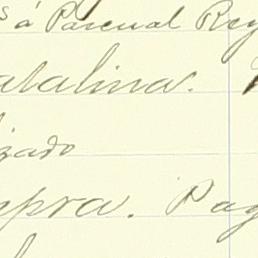 s á Pascual Rey
atalina.
zado
mpra. Pag